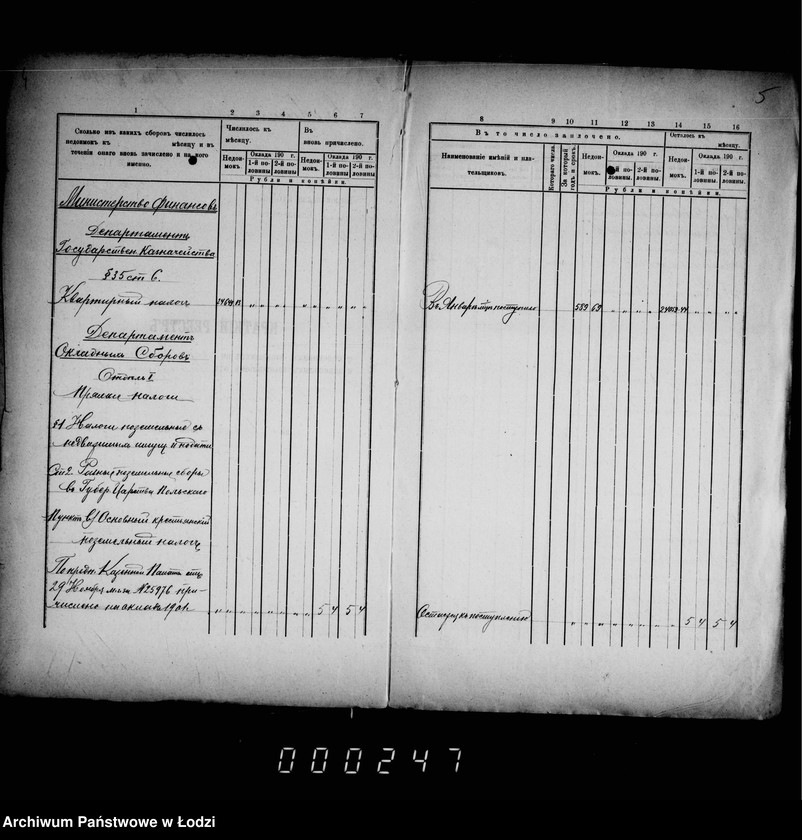 5
1
Сколько изъ какихъ сборовъ числилось
недоимокъ къ мѣсяцу и въ
теченіи онаго вновь зачислено и на кого
именно.
2 3 4
Числилось къ
мѣсяцу.
Недои-
мокъ.
Оклада 190 г.
1-й по-
ловины
2-й по-
ловины
5 6 7
Въ
вновь причислено.
Недои-
мокъ.
Оклада 190 г.
1-й по-
ловины
2-й по-
ловины
Рубли и копѣйки.
Министерство Финансовъ
Департаментъ
Государствен. Казначейства
§ 35 ст 6.
Квартирный налогъ
Департаментъ
Окладныхъ Сборовъ
Отдѣлъ I
Прямые налоги
§1 Налоги поземельные съ
недвижимыхъ имущ и подати
Ст 2. Разные поземельные сборы
въ Губер. Царства Польскаго
Пунктъ в/ Основный крестьянскій
поземельный налогъ
По предп. Казенной Палаты отъ
29 Ноября № 25976 при-
числено на окладъ 1901
5 4 5 4
8
Въ то число заплочено.
Наименованіе имѣній и пла-
тельщиковъ.
9
Котораго числа.
10
За который
годъ и срокъ.
11 12 13
Недои-
мокъ.
Оклада 190 г.
1-й по-
ловины.
2-й по-
ловины.
14 15 16
Осталось къ
мѣсяцу.
Недои-
мокъ.
Оклада 190 г.
1-й по-
ловины
2-й по-
ловины
Рубли и копѣйки.
Въ Январѣ мцѣ поступило
589 69
Остается къ поступленію
5 4 5 4
000247
Archiwum Państwowe w Łodzi